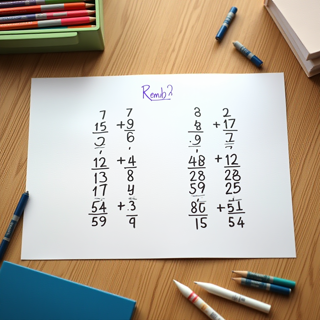 Remb?
7 7 8 2
15 +9 8 +17
5 6 9 7
12 +4 48 +12
13 8 28 28
17 4 59 25
54 +3 86 +51
59 9 15 54